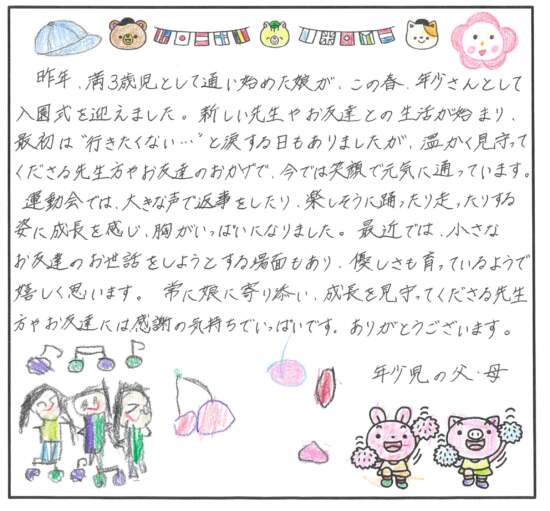 昨年、満3歳児として通い始めた娘が、この春、年少さんとして
入園式を迎えました。新しい先生やお友達との生活が始まり、
最初は"行きたくない…"と涙する日もありましたが、温かく見守って
くださる先生方やお友達のおかげで、今では笑顔で元気に通っています。
運動会では、大きな声で返事をしたり、楽しそうに踊ったり走ったりする
姿に成長を感じ、胸がいっぱいになりました。最近では、小さな
お友達のお世話をしようとする場面もあり、優しさも育っているようで
嬉しく思います。常に娘に寄り添い、成長を見守ってくださる先生
方やお友達には感謝の気持ちでいっぱいです。ありがとうございます。
年少児の父・母